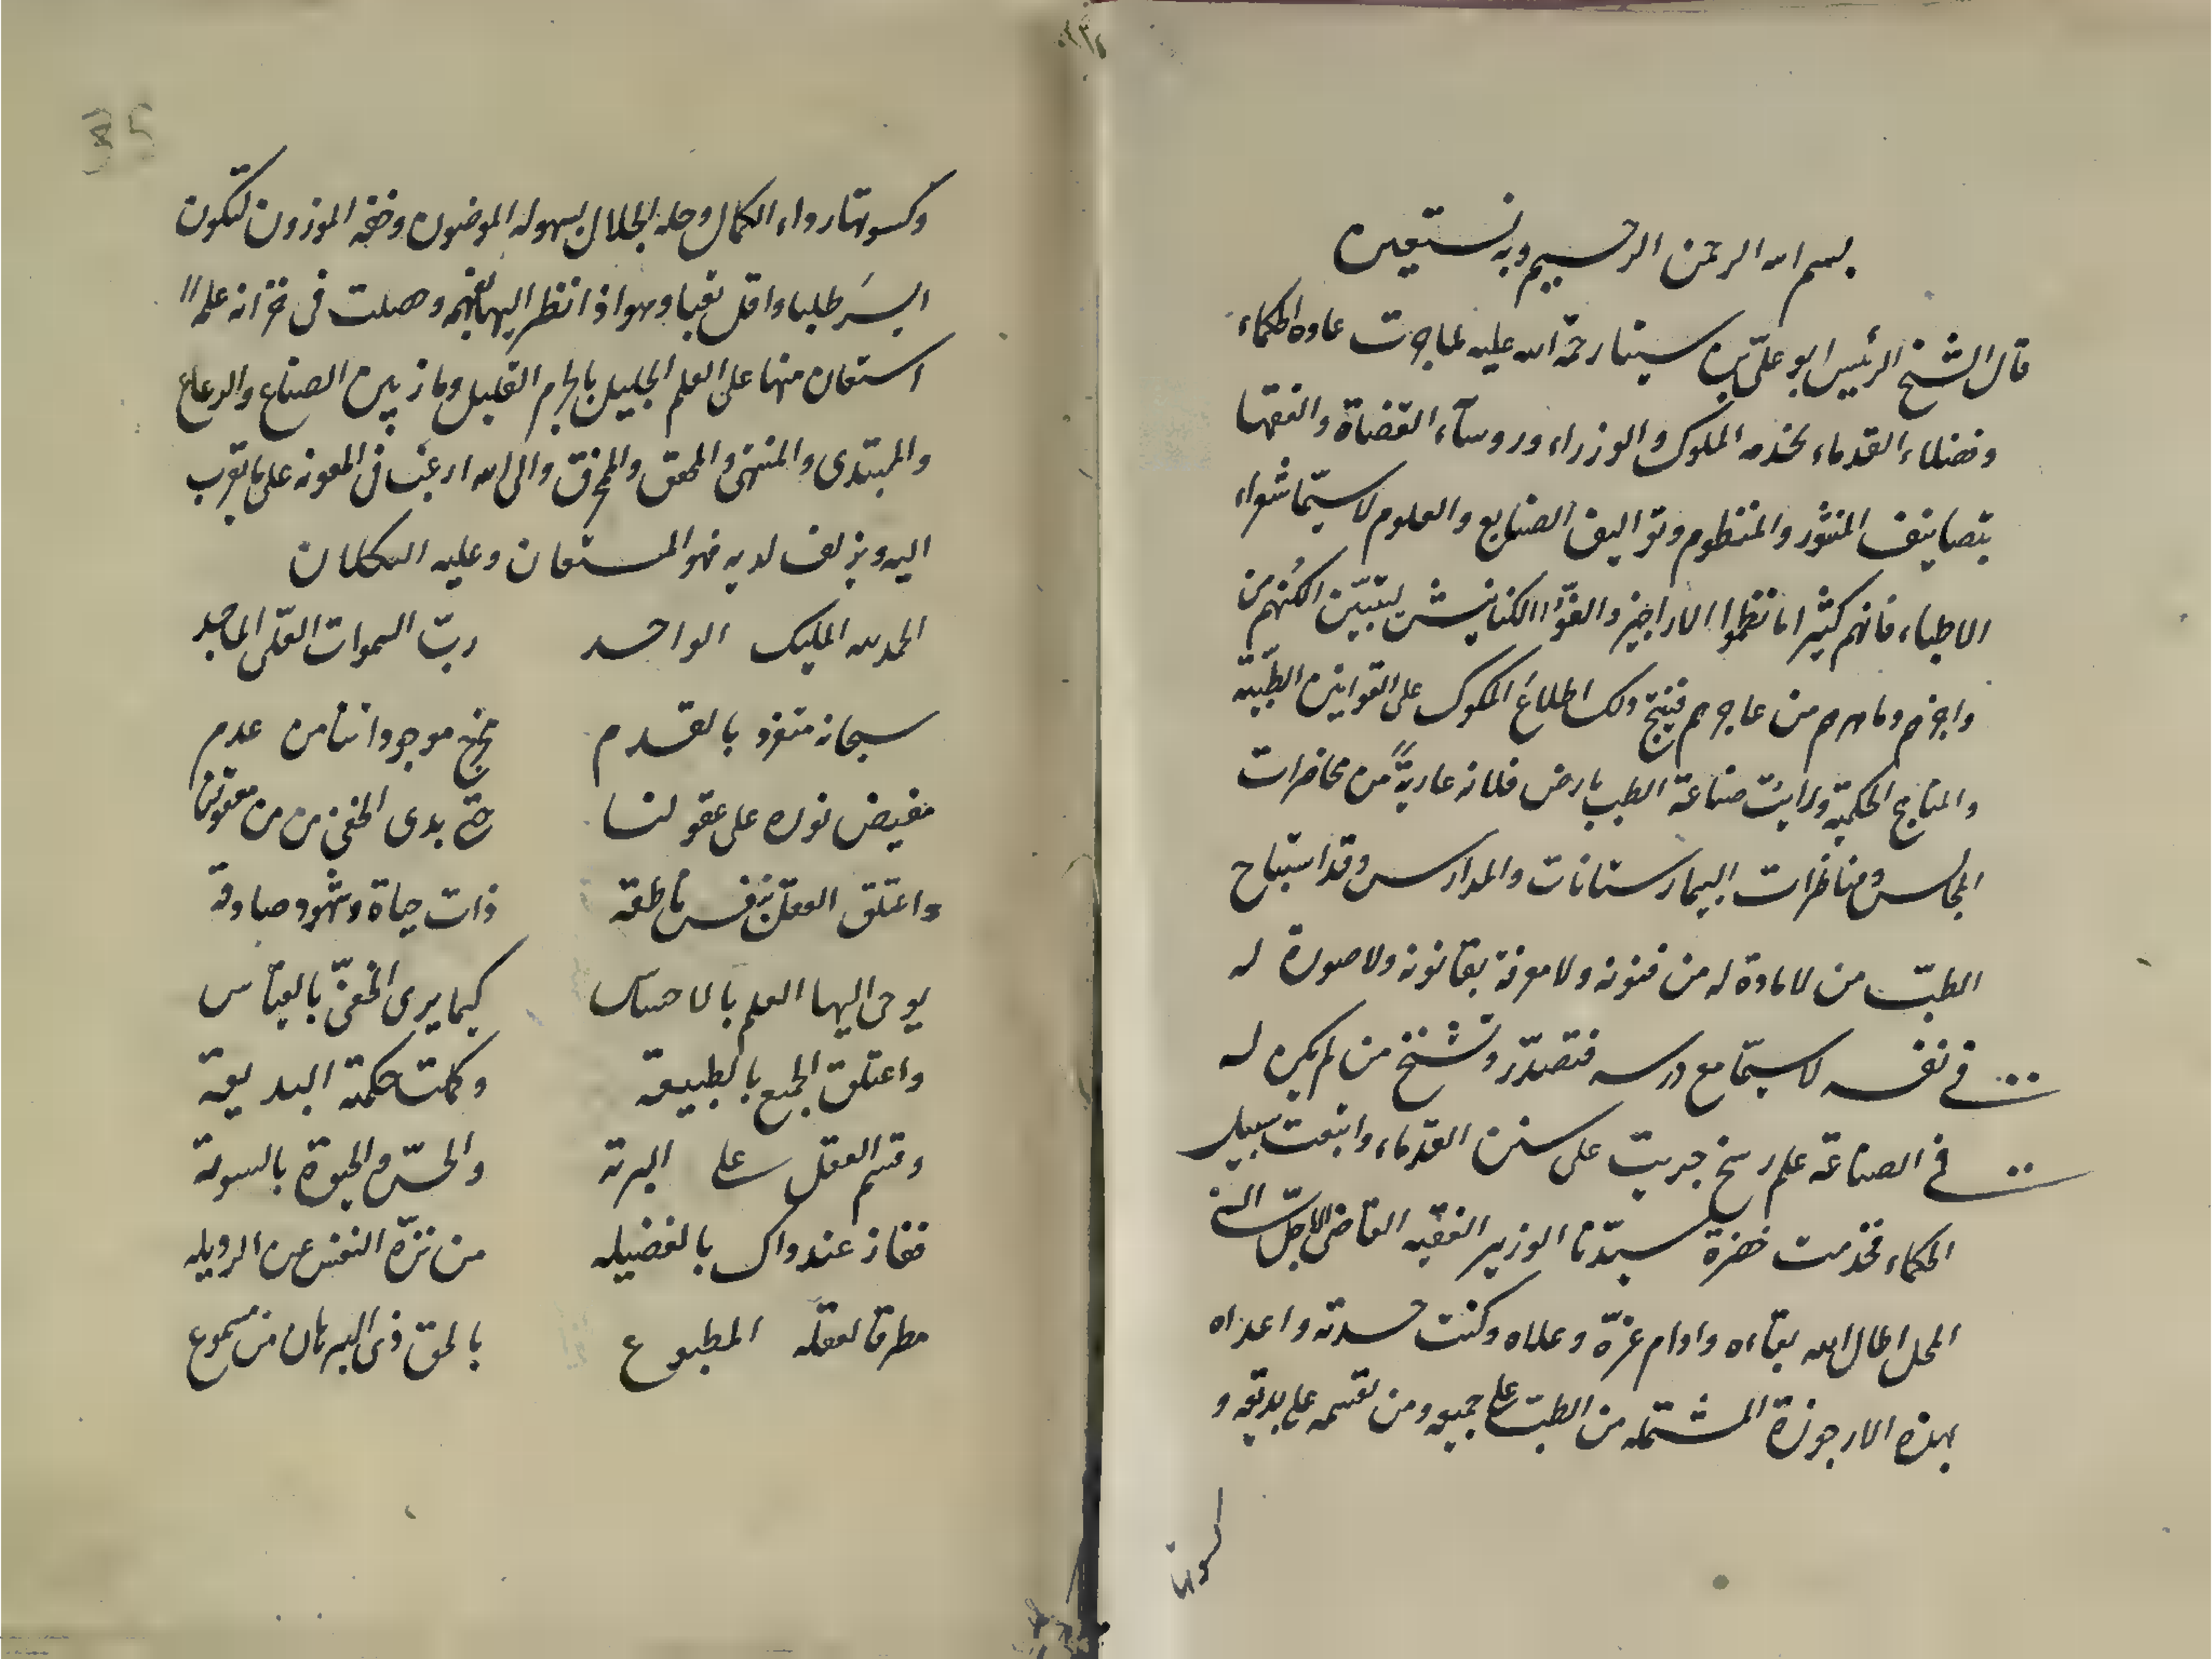 بسم الله الرحمن الرحيم وبه نستعين
قال الشيخ الرئيس ابو علىّ بن سينا رحمة الله عليه لما جرت عادة الحكماء
وفضلاء القدماء بخدمه الملوك والوزراء وروساء القضاة والفقها
بتصانيف المنثور والمنظوم وتواليف الصنايع والعلوم لا سيّما شعراء
الاطباء فانهم كثيرا ما نظموا الاراجيز والفوّا الكنانيش ليتبيّن الكنهم من
واجزهم وماهرهم من عاجزهم فينتج ذلك اطلاع الملوك على القوانين الطّبيّه
والمناهج الحكميّه ورايت صناعة الطب بارض فلانه عاريةً من محاضرات
المجالس ومناظرات البيمارستانات والمدارس وقد استباح
الطبّ من لا مادة له من فنونه ولا معرفة بقانونه ولا صورة له
في نفسه لا سيّما مع درسه فتصدّر وتشيخ من لم يكن له
في الصناعة علم رسخ جريت على سنن القدماء واتبعت سبيل
الحكماء فخدمت حضرة سيّدنا الوزير الفقيه القاضى الاجلّ السنى
المحل اطال الله بقاءه وادام عزّه وعلاه وكبت حسدته واعداه
بهذه الارجوزة المشتمله من الطبّ على جميعه ومن تقسيمه على بديعه و
كسوتها
وكسوتها رداء الكمال وحله الجلال بسهوله الموضون وخفه الموزون لتكون
ايسَر طلبا واقل تعبا وهو اذا نظر اليها بفهمه وحصلت فى خزانه علمه
استعان منها على العلم الجليل بالجرم القليل وماز بين الصناع والرعاع
والمبتدى والمنتهى والمحقق والمخرق والى الله ارغب فى المعونه على ما يقرب
اليه ويزلف لديه فهو المستعان وعليه التكلان
الحمد لله المليك الواحد ربّ السموات العلّى الماجد
سبحانه منفرد بالقدم مخرج موجوداتنا من عدم
مفيض نوره على عقولنا حتى بدى الخفى من من معقولنا
واعتلق العقل بنفس ناطقه ذات حياة وشهود صادقة
يوحى اليها العلم بالاحساس كيما يرى الخفىّ بالقياس
واعتلق الجميع بالطبيعة وكملت حكمته البديعة
وقسم العقل على البرية والحسّ والحيوة بالسوية
ففاز عند ذاك بالفضيله من نزّه النفس عن الرذيله
مطرقا لعقله المطبوع بالحق ذى البرهان من مسموع